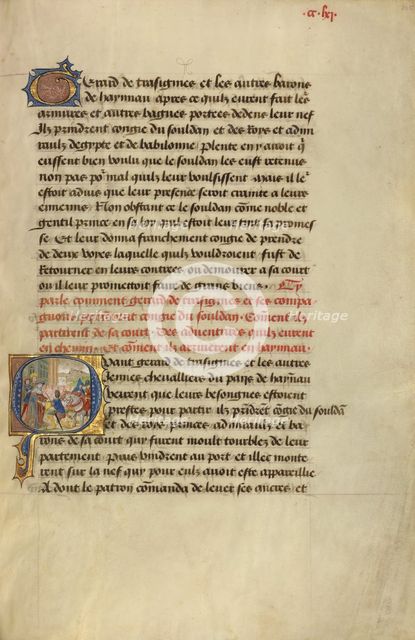 ·cc·lxj·
Gerard de trasignies et les autres barons
de haynnau apres ce quilz eurent fait le's
armures et autres bagues portees dedens leur nef
Ilz prindrent congie du souldan et des roys et admi
raulz degypte et de babilonne / Plente en y avoit q̃
eussent bien voulu que le souldan les eust retenus
non pas por mal quilz leur voulsissent Mais il le's
estoit advis que leur presence seroit crainte a leurs
ennemis / Non obstant ce le souldan cõme noble et
gentil prince en sa loy qui estoit leur tint sa promes
se Et leur donna franchement congie de prendre
de deux voyes laquelle quilz vouldroient fust de
Retourner en leurs contrees ou demourer a sa court
ou il leur promettoit faire de grans biens · Cy
parle comment gerard de trasignies et ses compa
gnons prindrent congie du souldan. Cõment ilz
partirent de sa court. Des adventures quilz eurent
en chemin. Et cõment ilz arriverent en haynnau
Quant gerard de trasignies et les autres
gentilz chevalliers du pays de haynnau
veirent que leurs besongnes estoient
prestes pour partir ilz prindrent cõgie du souldã
et des roys princes admiraulz et ba
rons de sa court qui furent moult tourblez de leur
partement Puis vindrent au port et illec monte
rent sur la nef quy pour eulz avoit este appareillie
A dont le patron cõmanda de lever ses ancres et
Heritage Heritage